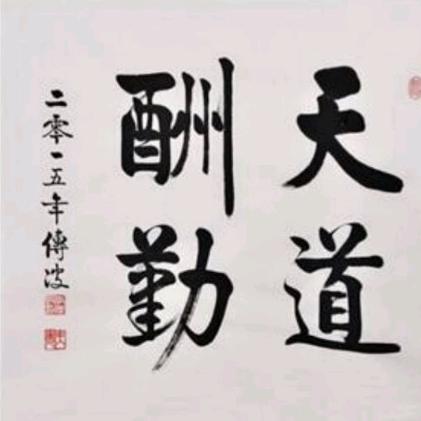 天道
酬勤
二零一五年傳波